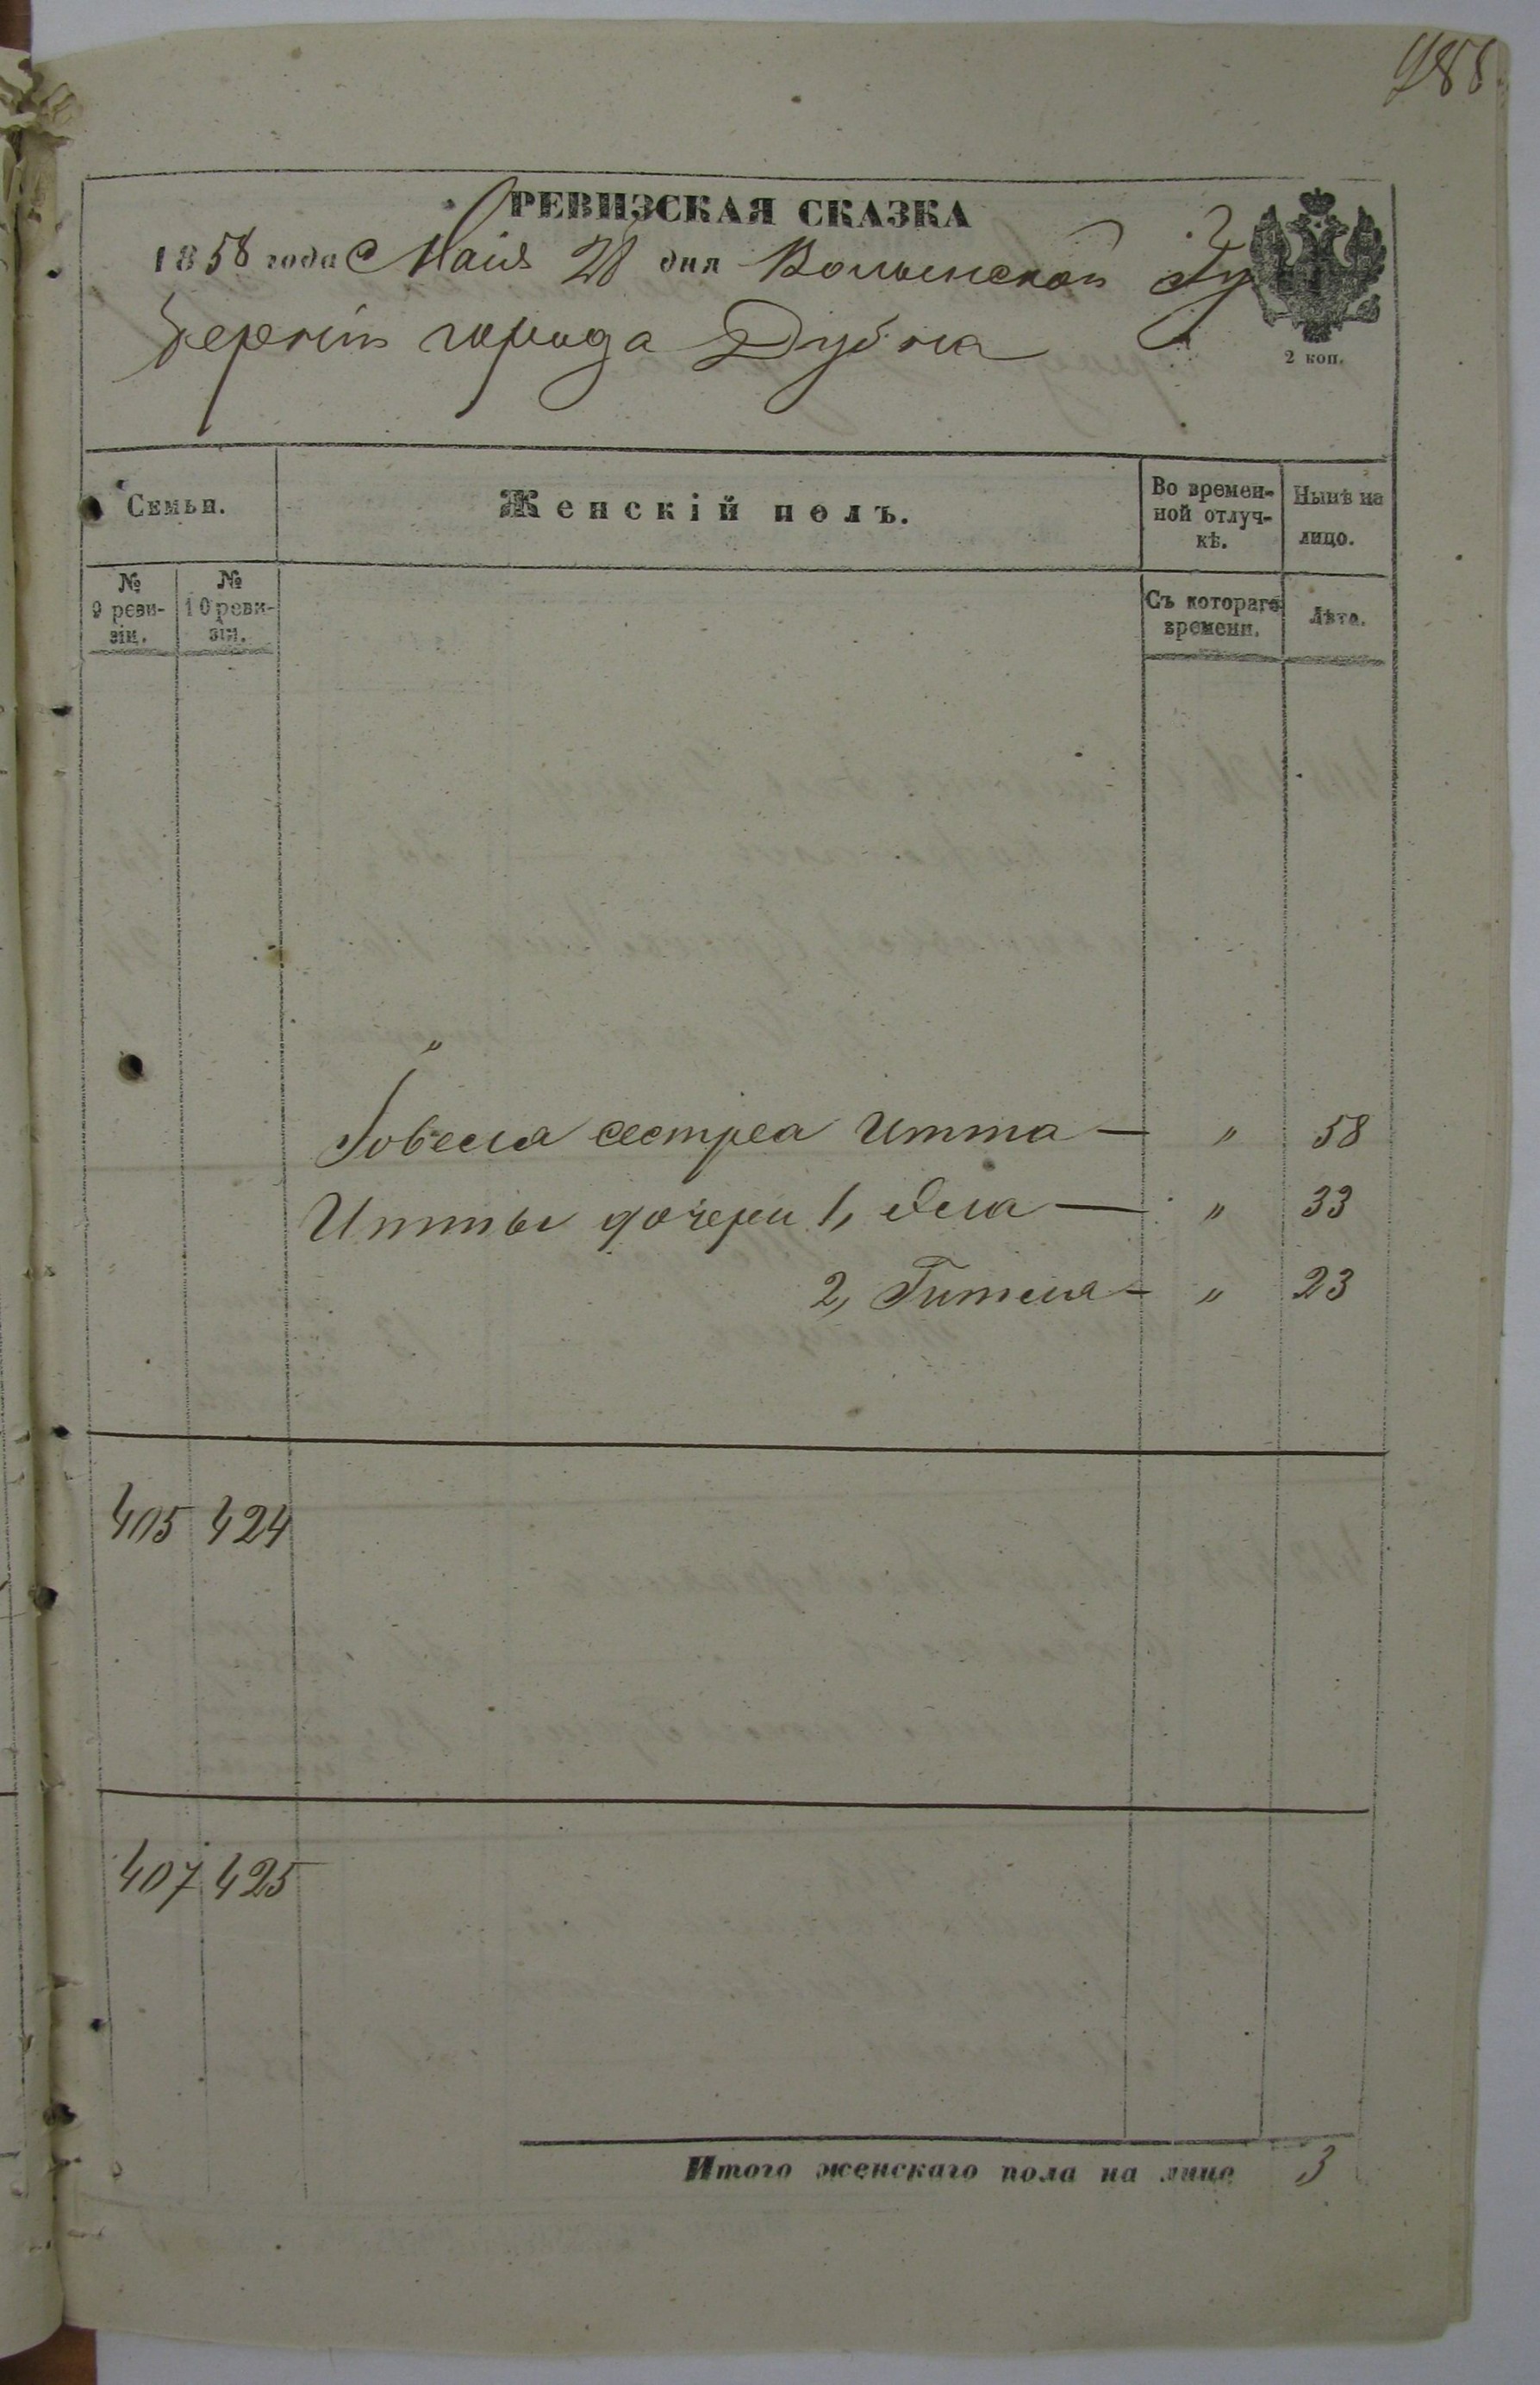 РЕВИЗСКАЯ СКАЗКА
1858 года Маія 28 дня Волынской Гу
берніи города Дубна
2 коп.
Семьи.
Женскій полъ.
Во времен-
ной отлуч-
кѣ.
Нынѣ на
лицо.
№
9 реви-
зіи.
№
10 реви-
зіи.
Съ котораго
времени.
Лѣта.
"
сестра Итта — " 58
Итты дочери 1, — " 33
2, Гитля — " 23
405 424
407 425
Итого женскаго пола на лицо 3